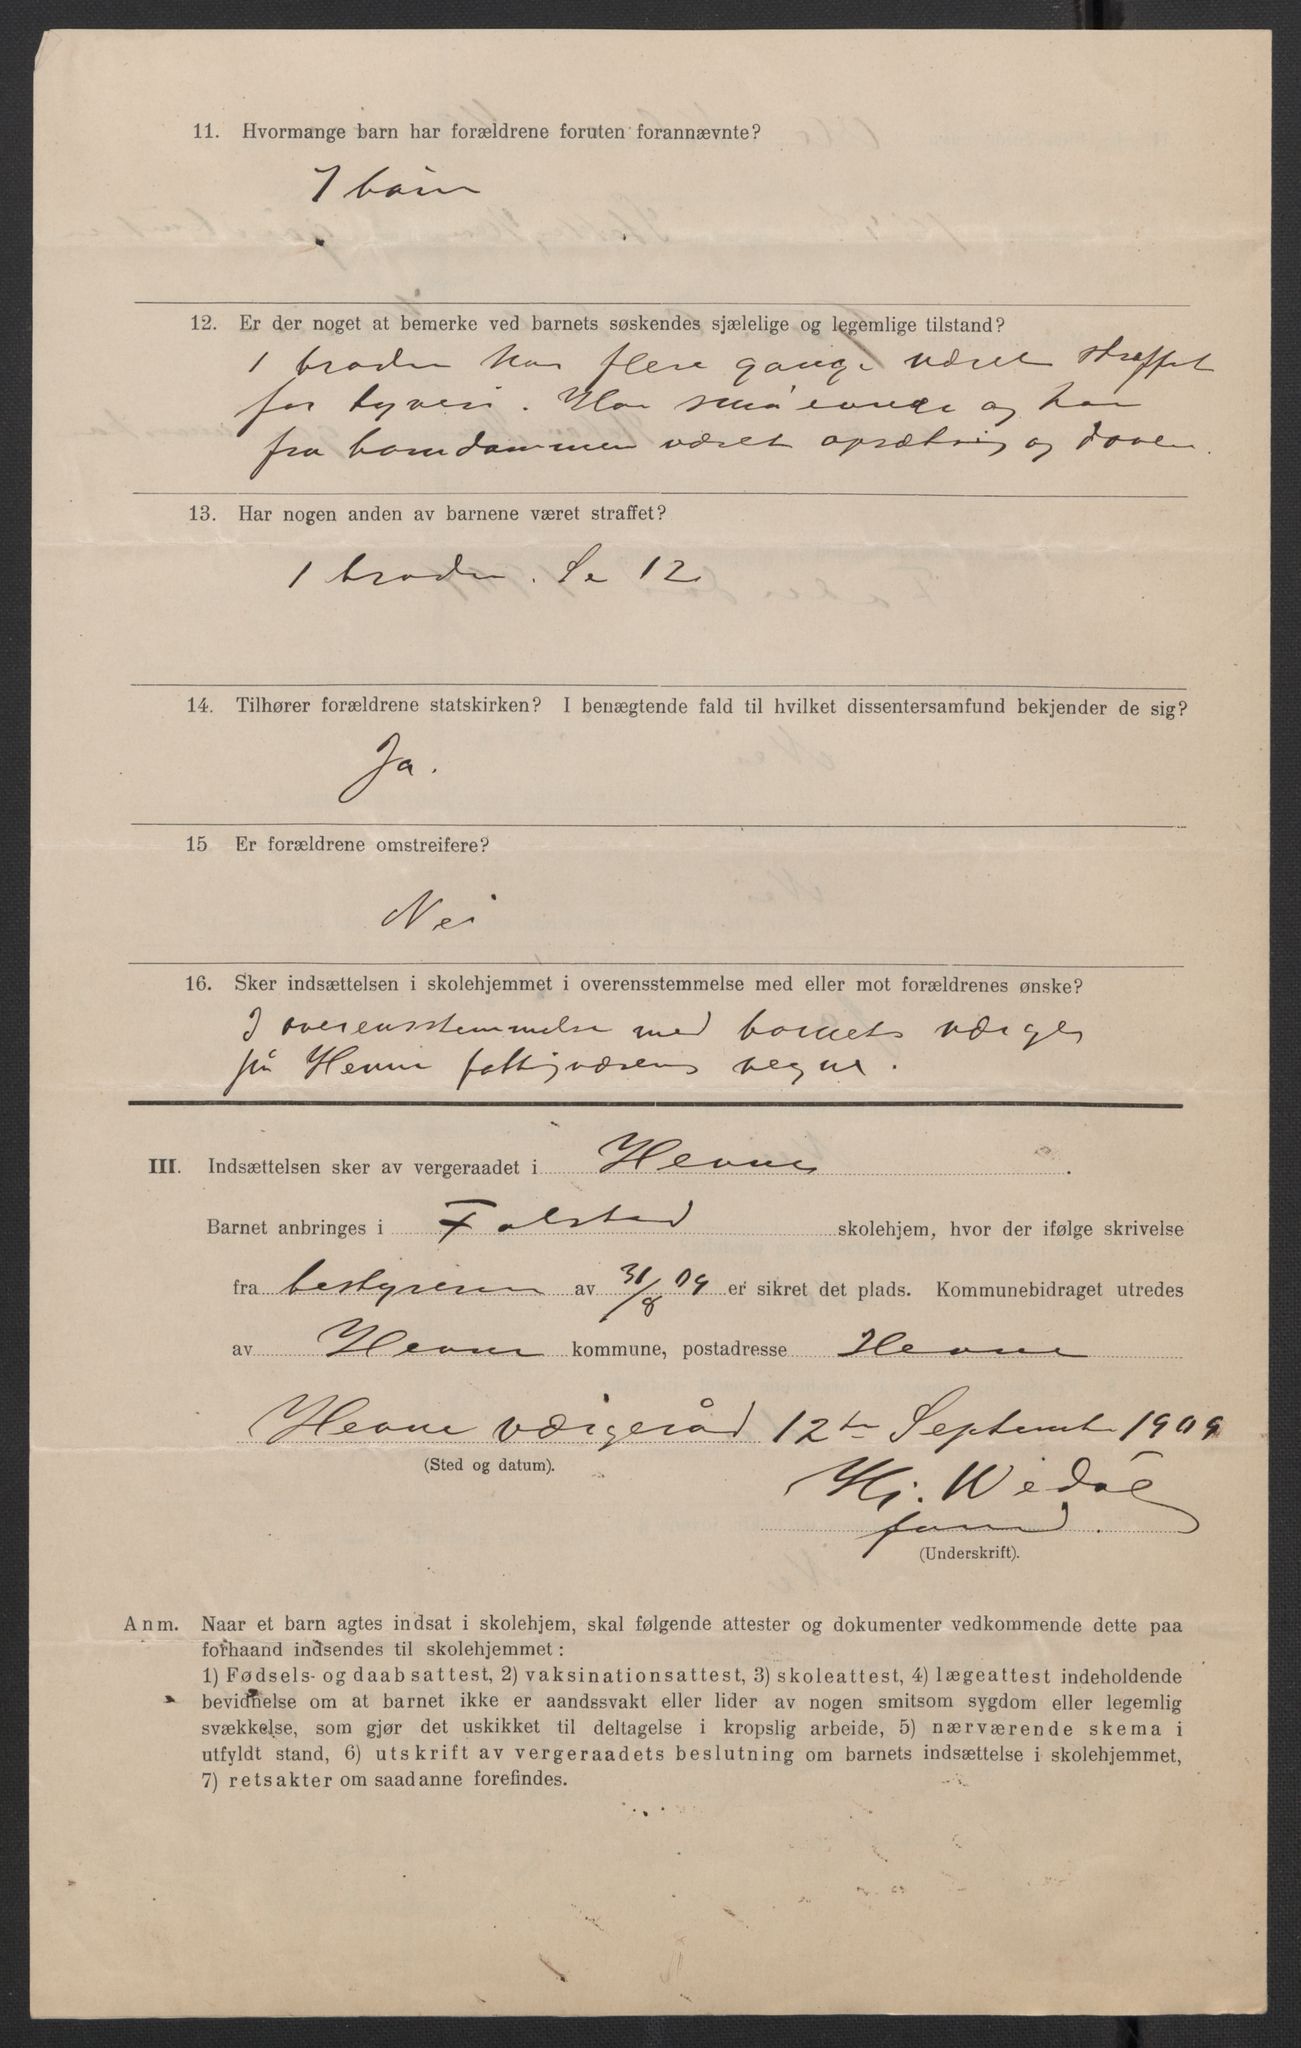 11. Hvormange barn har forældrene foruten forannævnte?
7 barn
12. Er der noget at bemerke ved barnets søskendes sjælelige og legemlige tilstand?
1 broder har flere gange været straffet
for tyveri. Har små evner og har
fra barndommen været opsætsig og doven.
13. Har nogen anden av barnene været straffet?
1 broder. Se 12
14. Tilhører forældrene statskirken? I benægtende fald til hvilket dissentersamfund bekjender de sig?
Ja.
15 Er forældrene omstreifere?
Nei
16. Sker indsættelsen i skolehjemmet i overensstemmelse med eller mot forældrenes ønske?
I overensstemmelse med barnets værges
på Hevne fattigvæsens vegne.
III. Indsættelsen sker av vergeraadet i Hevne.
Barnet anbringes i Falstad skolehjem, hvor der ifølge skrivelse
fra bestyreren av 31/8 09 er sikret det plads. Kommunebidraget utredes
av Hevne kommune, postadresse Hevne
Hevne værgeråd 12te September 1909
(Sted og datum).
Hj. Wedöe
form.
(Underskrift).
Anm. Naar et barn agtes indsat i skolehjem, skal følgende attester og dokumenter vedkommende dette paa
forhaand indsendes til skolehjemmet:
1) Fødsels- og daabsattest, 2) vaksinationsattest, 3) skoleattest, 4) lægeattest indeholdende
bevidnelse om at barnet ikke er aandssvakt eller lider av nogen smitsom sygdom eller legemlig
svækkelse, som gjør det uskikket til deltagelse i kropslig arbeide, 5) nærværende skema i
utfyldt stand, 6) utskrift av vergeraadets beslutning om barnets indsættelse i skolehjemmet,
7) retsakter om saadanne forefindes.